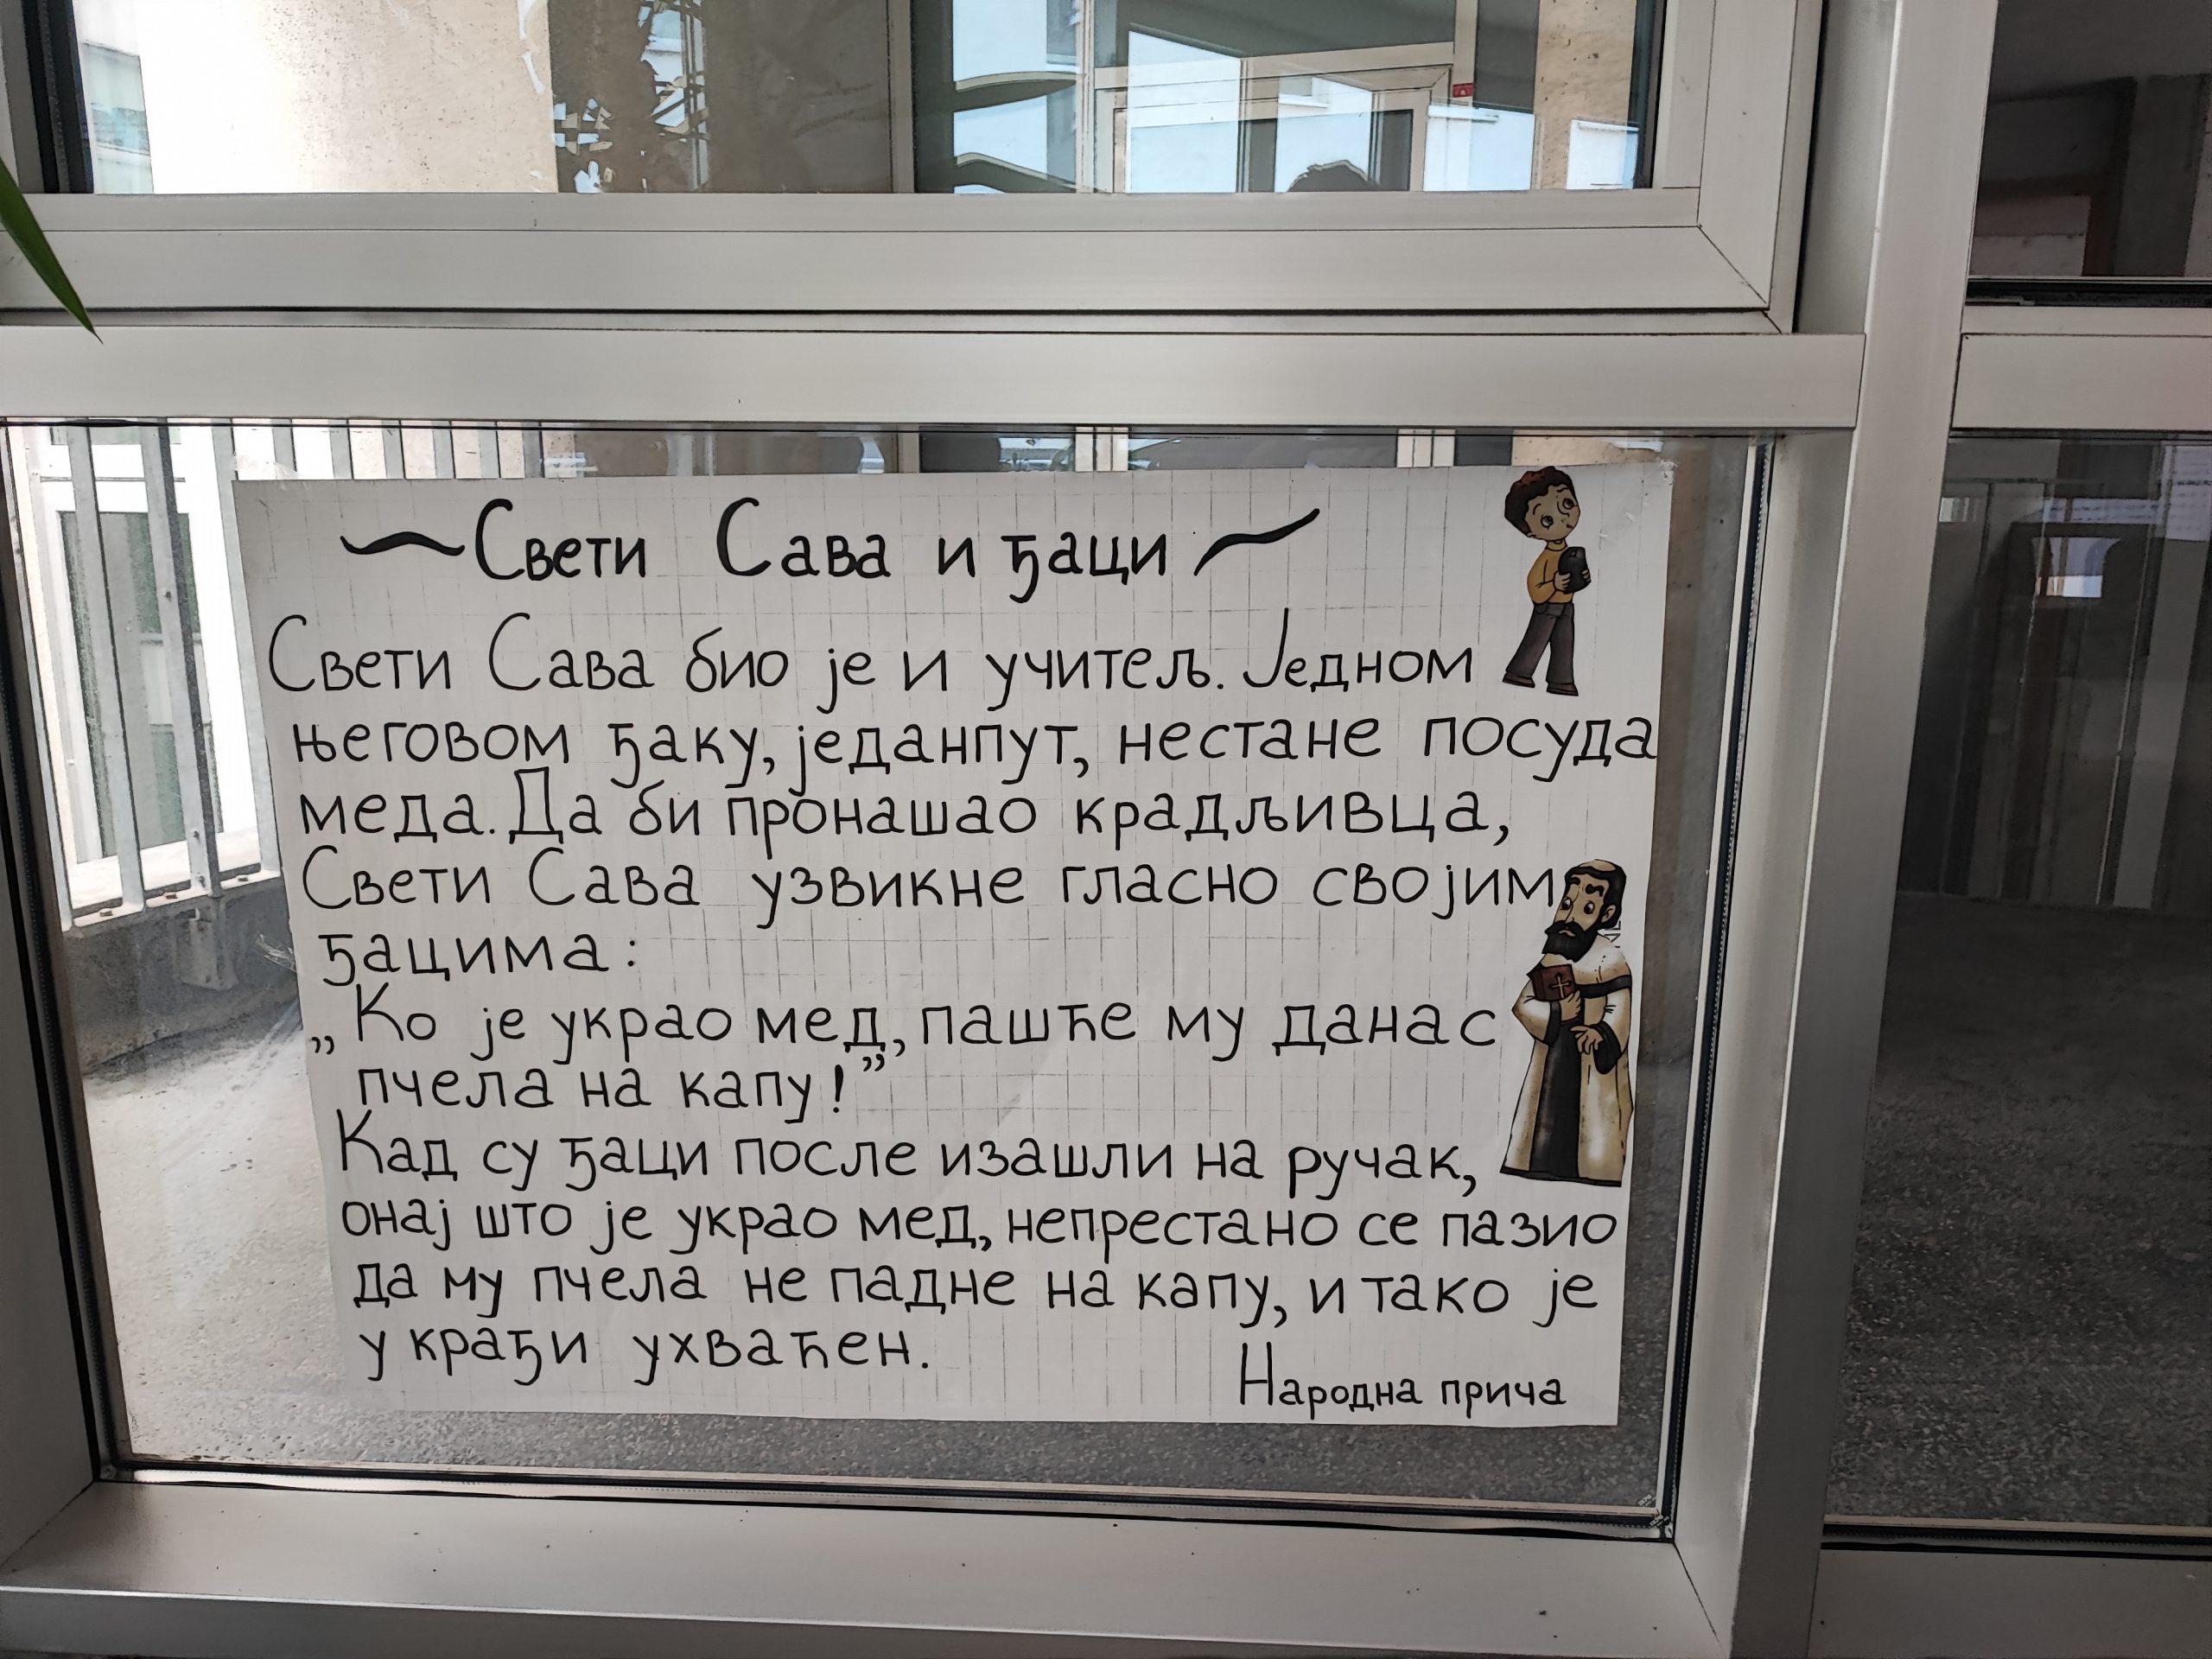 ~Свети Сава и ђаци~
Свети Сава био је и учитељ. Једном
његовом ђаку, једанпут, нестане посуда
меда. Да би пронашао крадљивца,
Свети Сава узвикне гласно својим
ђацима:
„Ко је украо мед, пашће му данас
пчела на капу!”
Кад су ђаци после изашли на ручак,
онај што је украо мед, непрестано се пазио
да му пчела не падне на капу, и тако је
у крађи ухваћен.
Народна прича